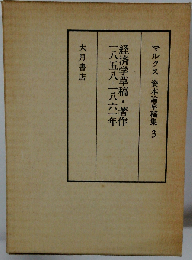 マルクス 資本論草稿集 3
経済学草稿・著作
一八五八―一八六一年
大月書店